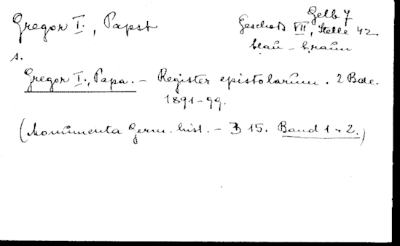 Gregor I., Papst
Gelb 7
Geschoß VII, Stelle 42
blau - braun
s.
Gregor I., Papa. - Register epistolarum. 2 Bde.
1891-99.
(Monumenta Germ. hist. - 15. Band 1 + 2.)